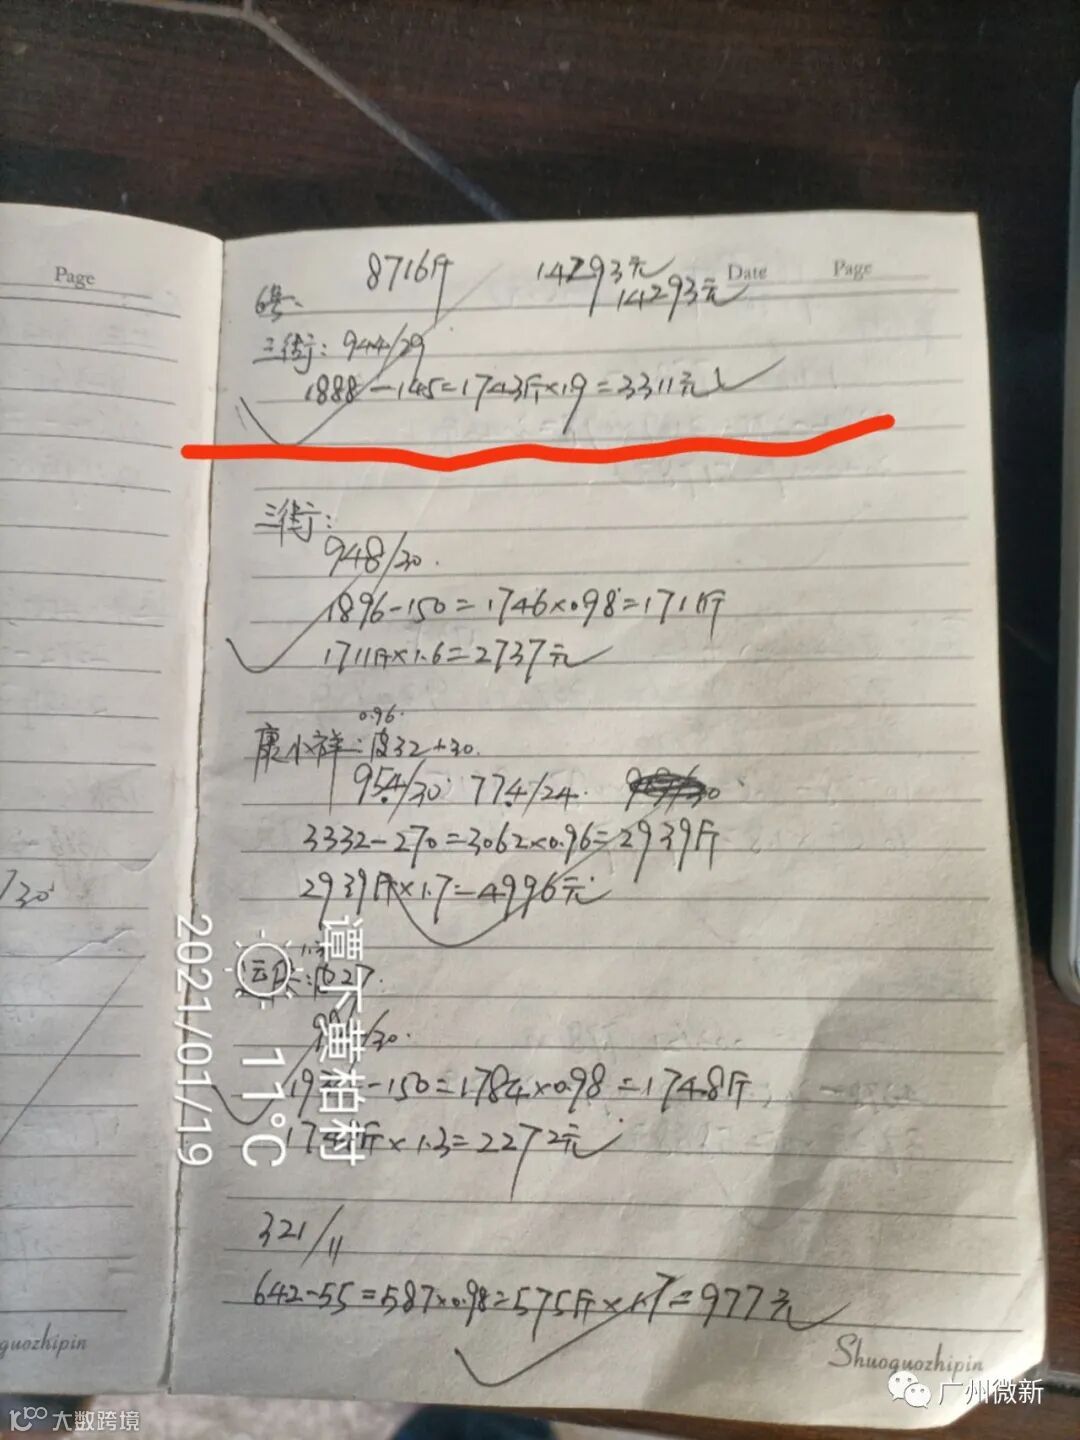 Page
Date Page
8716斤 14293元
14293元
6号、
三街: 944/29
1888-145=1743斤×1.9=3311元
三街:
948/30.
1896-150=1746×0.98=1711斤
1711斤×1.6=2737元
0.96.
康小祥:皮32+30.
954/30 774/24.
3332-270=3062×0.96=2939斤
2939斤×1.7=4996元
1.3
:皮27.
/30.
-150=1784×0.98=1748斤
斤×1.3=2272元
321/11
642-55=587×0.98=575斤×1.7=977元
/30
guozhipin
Shuoguozhipin
谭下黄柏村
云 11°C
2021/01/19
广州微新
大数跨境